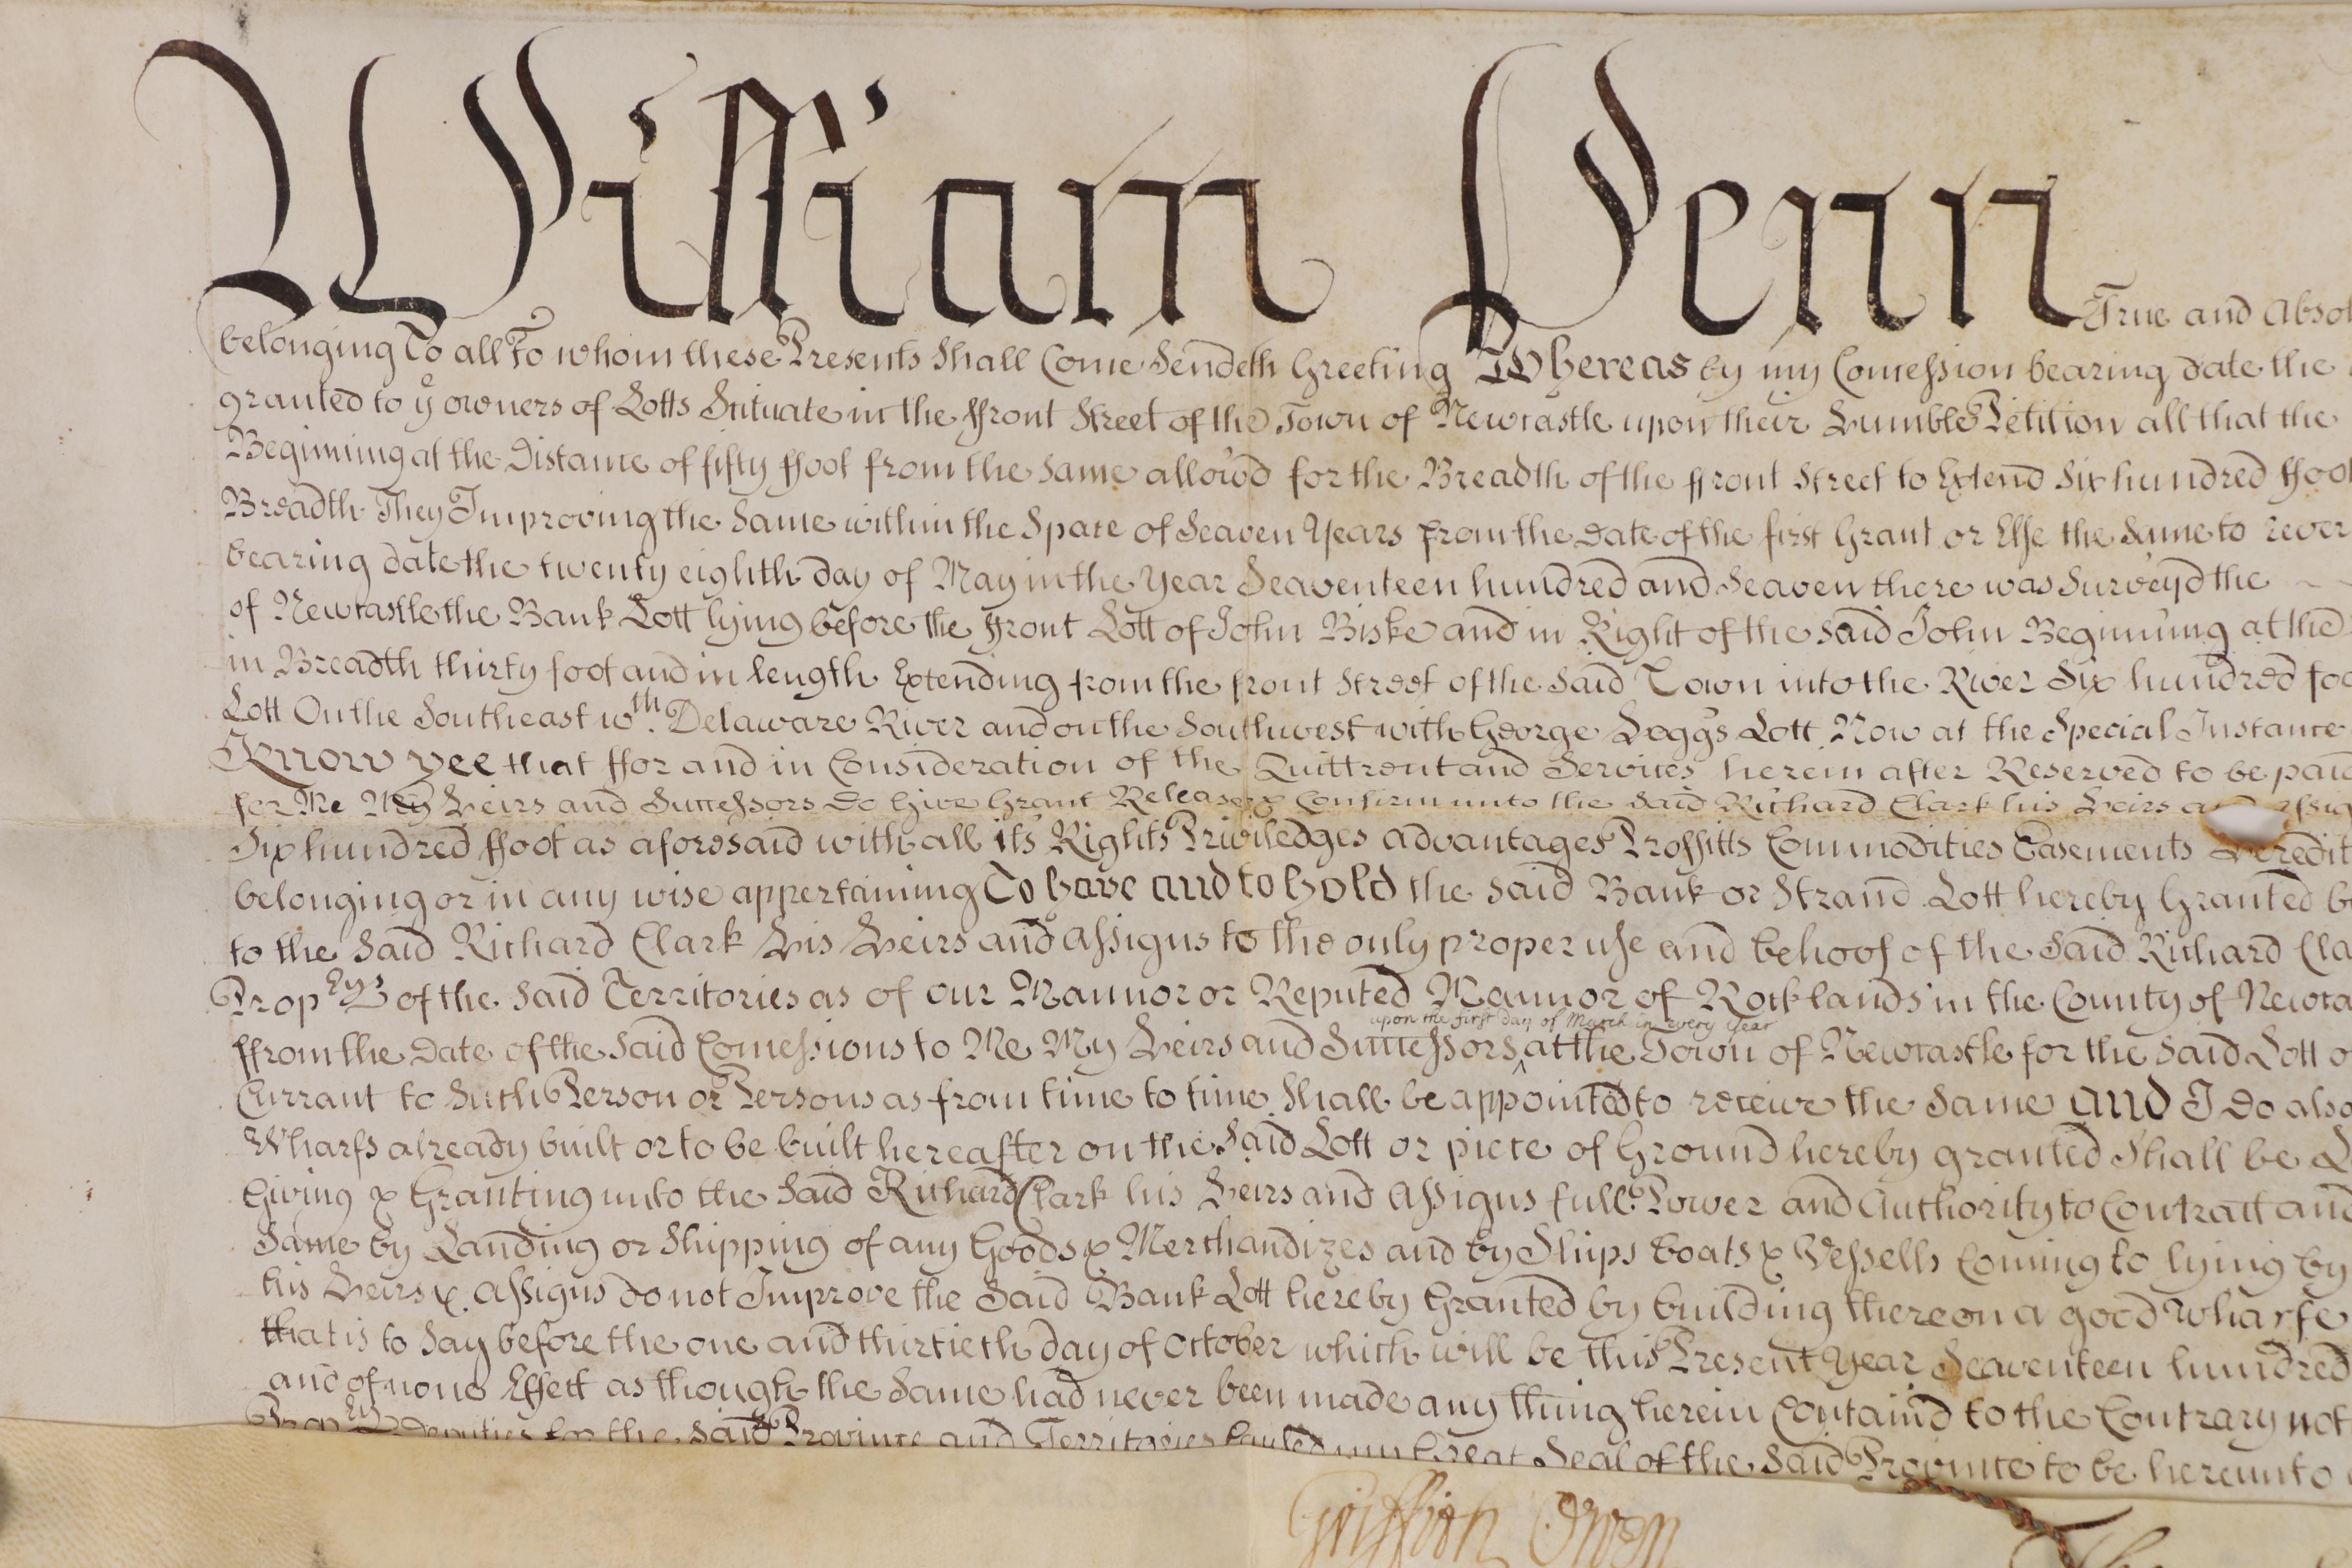 William Penn True and Absol
belonging To all To whom these Presents Shall Come Sendeth Greeting Whereas by my Concession bearing date the
granted to ye owners of Lotts Scituate in the ffront Street of the Town of Newcastle upon their Humble Petition all that the
Beginning at the Distance of fifty ffoot from the Same allow'd for the Breadth of the ffront Street to Extend Six hundred ffoot
Breadth They Improving the Same within the Space of Seaven Years from the Date of the first Grant or Else the Same to rever
bearing date the twenty eighth day of May in the Year Seaventeen hundred and Seaven there was Survey'd the
of Newcastle the Bank Lott lying before the ffront Lott of John Biske and in Right of the Said John Beginning at the
in Breadth thirty foot and in length Extending from the front Street of the Said Town into the River Six hundred foo
Lott On the Southeast wth. Delaware River and on the Southwest with George Hoggs Lott Now at the Special Instance
Know yee that ffor and in Consideration of the Quittrent and Services herein after Reserved to be paid
for Me My Heirs and Successors Do Give Grant Release & Confirm unto the Said Richard Clark his Heirs and Assig
Six hundred ffoot as aforesaid with all its Rights Priviledges advantages Proffitts Commodities Easements Heredit
belonging or in any wise appertaining To have and to hold the Said Bank or Strand Lott hereby Granted b
to the Said Richard Clark His Heirs and Assigns to the only proper use and behoof of the Said Richard Cla
Propry's of the Said Territories as of our Mannor or Reputed Mannor of Rocklands in the County of Newca
upon the first day of March in every year
ffrom the Date of the Said Concessions to Me My Heirs and Successors ^ at the Town of Newcastle for the Said Lott o
Currant to Such Person or Persons as from time to time Shall be appointed to receive the Same And I Do also
Wharfs already built or to be built hereafter on the Said Lott or piece of Ground hereby granted Shall be
Giving & Granting unto the Said Richard Clark his Heirs and Assigns full Power and Authority to Contract and
Same by Landing or Shipping of any Goods & Merchandizes and by Ships boats & Vessells Coming to lying by
his Heirs & Assigns do not Improve the Said Bank Lott hereby Granted by building thereon a good Wharfe
that is to Say before the one and thirtieth day of October which will be this Present Year Seaventeen hundred
and of none Effect as though the Same had never been made any thing herein Contain'd to the Contrary not
Propry Deputies for the Said Province and Territories Caused my Great Seal of the Said Province to be hereunto
Griffith Owen